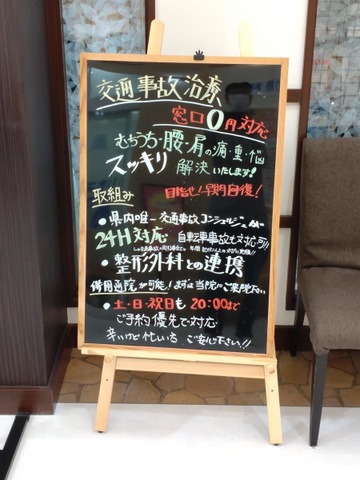 交通事故治療
窓口0円対応
むちうち・腰・肩の痛・重・悩
スッキリ 解決いたします!
取組み 目指せ!早期回復!
●県内唯一 交通事故コンシェルジュ
24H対応 自転車事故も対応可!!
●整形外科との連携
併用通院が可能!まずは当院にご来院下さい
●土・日・祝日も20:00まで
ご予約優先で対応
辛いけど忙しい方 ご安心下さい!!